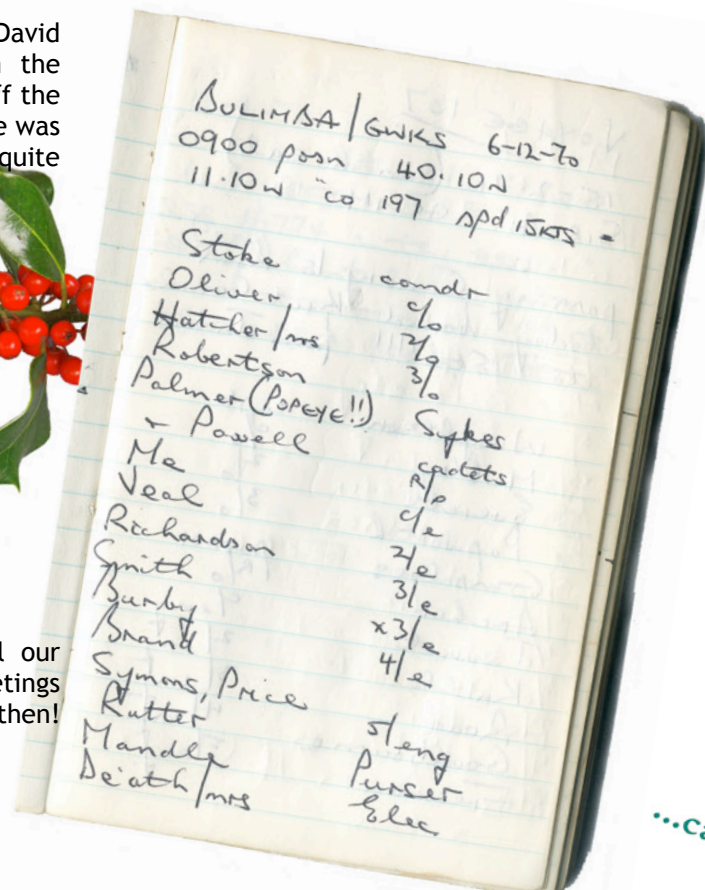 David
the
ff the
e was
quite
BULIMBA/GWKS 6-12-70
0900 posn 40.10N
11.10W co 197 spd 15KTS -
Stoke comdr
Oliver c/o
Hatcher/mrs 2/o
Robertson 3/o
Palmer (POPEYE!!) Sykes
+ Powell cadets
Me R/o
Veal c/e
Richardson 2/e
Smith 3/e
Burby x3/e
Brand 4/e
Symons, Price
Rutter 5/eng
Mandle Purser
De'ath/mrs Elec
l our
etings
then!
...ca